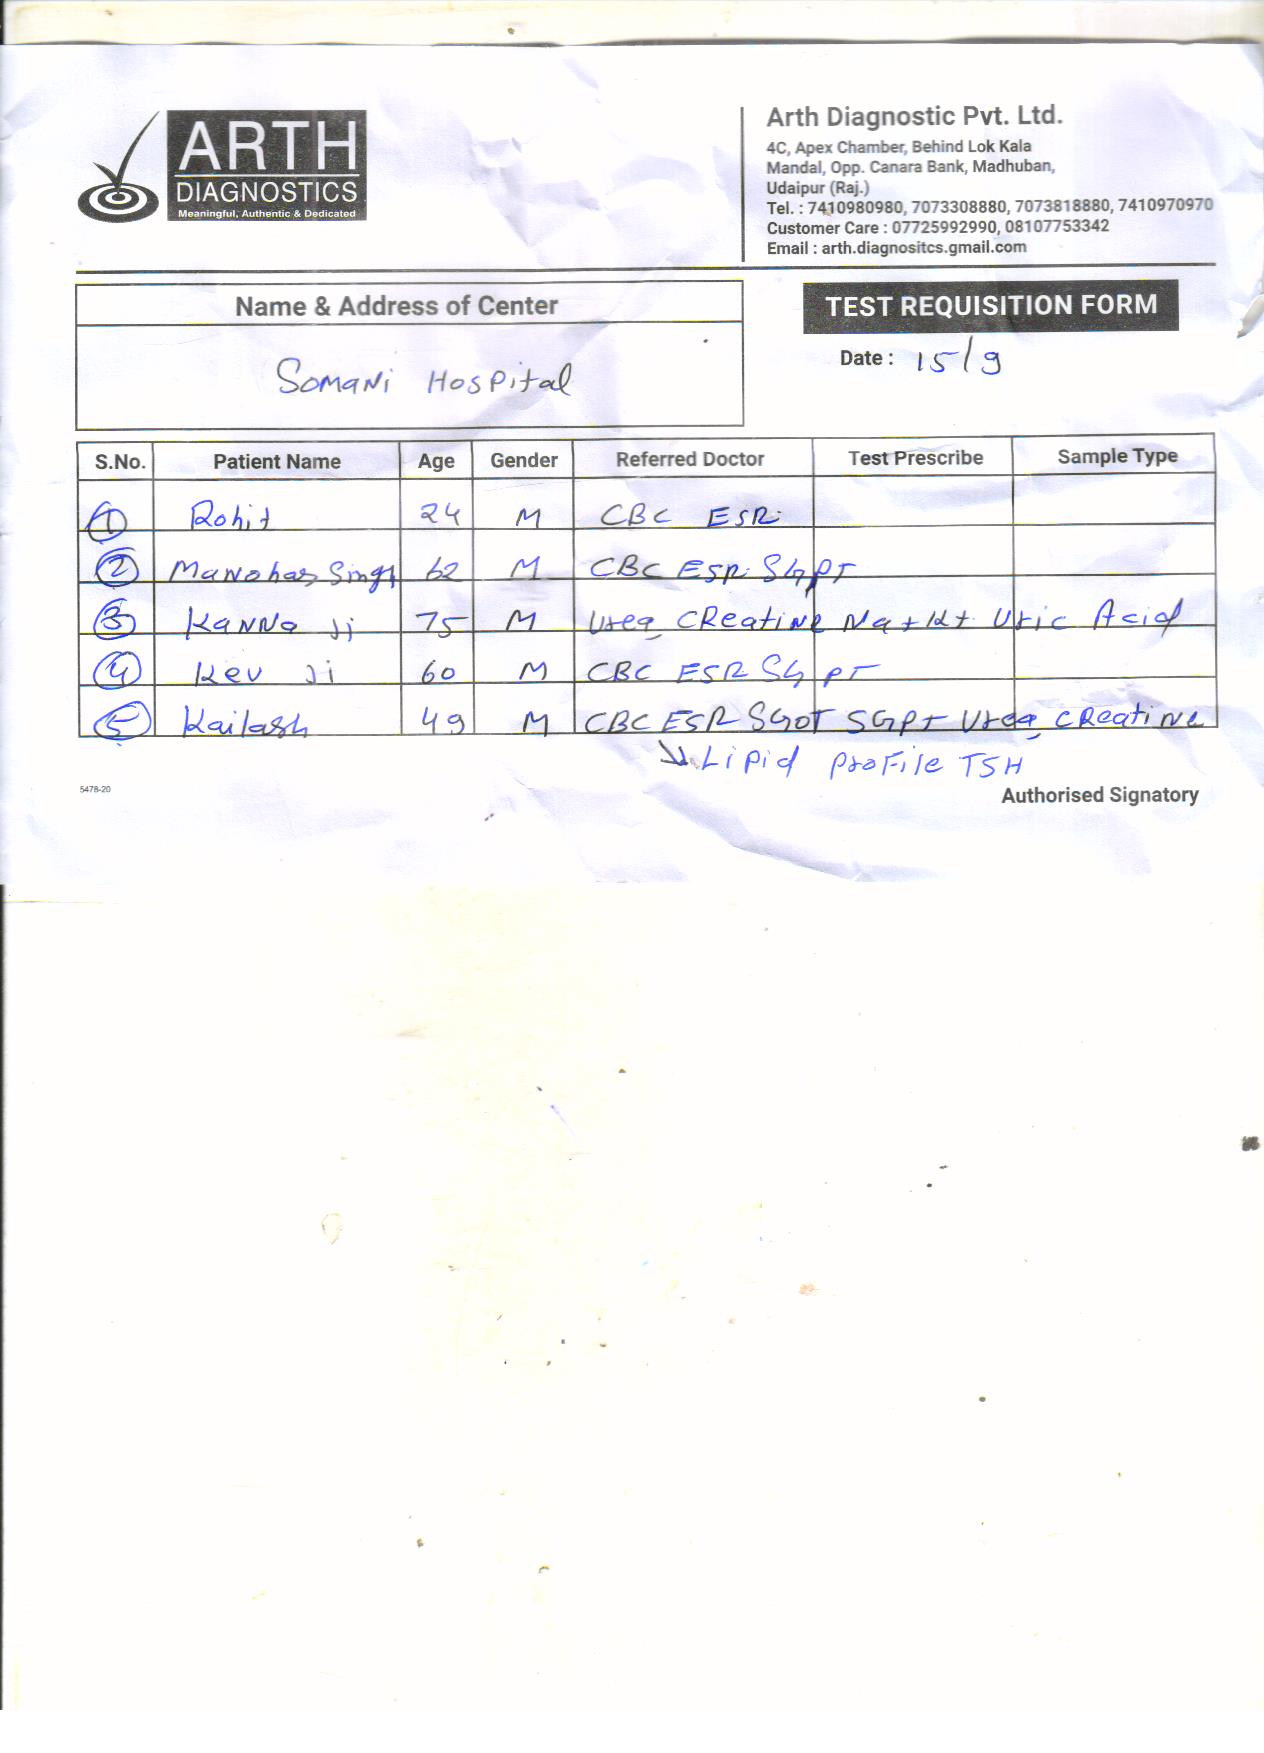 ARTH
DIAGNOSTICS
Meaningful, Authentic & Dedicated
Arth Diagnostic Pvt. Ltd.
4C, Apex Chamber, Behind Lok Kala
Mandal, Opp. Canara Bank, Madhuban,
Udaipur (Raj.)
Tel. : 7410980980, 7073308880, 7073818880, 7410970970
Customer Care : 07725992990, 08107753342
Email : arth.diagnositcs.gmail.com
Name & Address of Center
TEST REQUISITION FORM
Somani Hospital
Date : 15/9
S.No. Patient Name Age Gender Referred Doctor Test Prescribe Sample Type
1 Rohit 24 M CBC ESR
2 Manohar Singh 62 M CBC ESR SGPT
3 Kanna Ji 75 M Urea Creatine Na+K+ Uric Acid
4 Kev Ji 60 M CBC ESR SGPT
5 Kailash 49 M CBC ESR SGOT SGPT Urea Creatine
Lipid Profile TSH
5478-20
Authorised Signatory